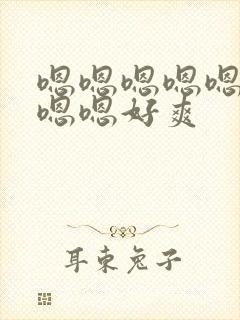 嗯嗯嗯嗯嗯
嗯嗯好爽
耳东兔子